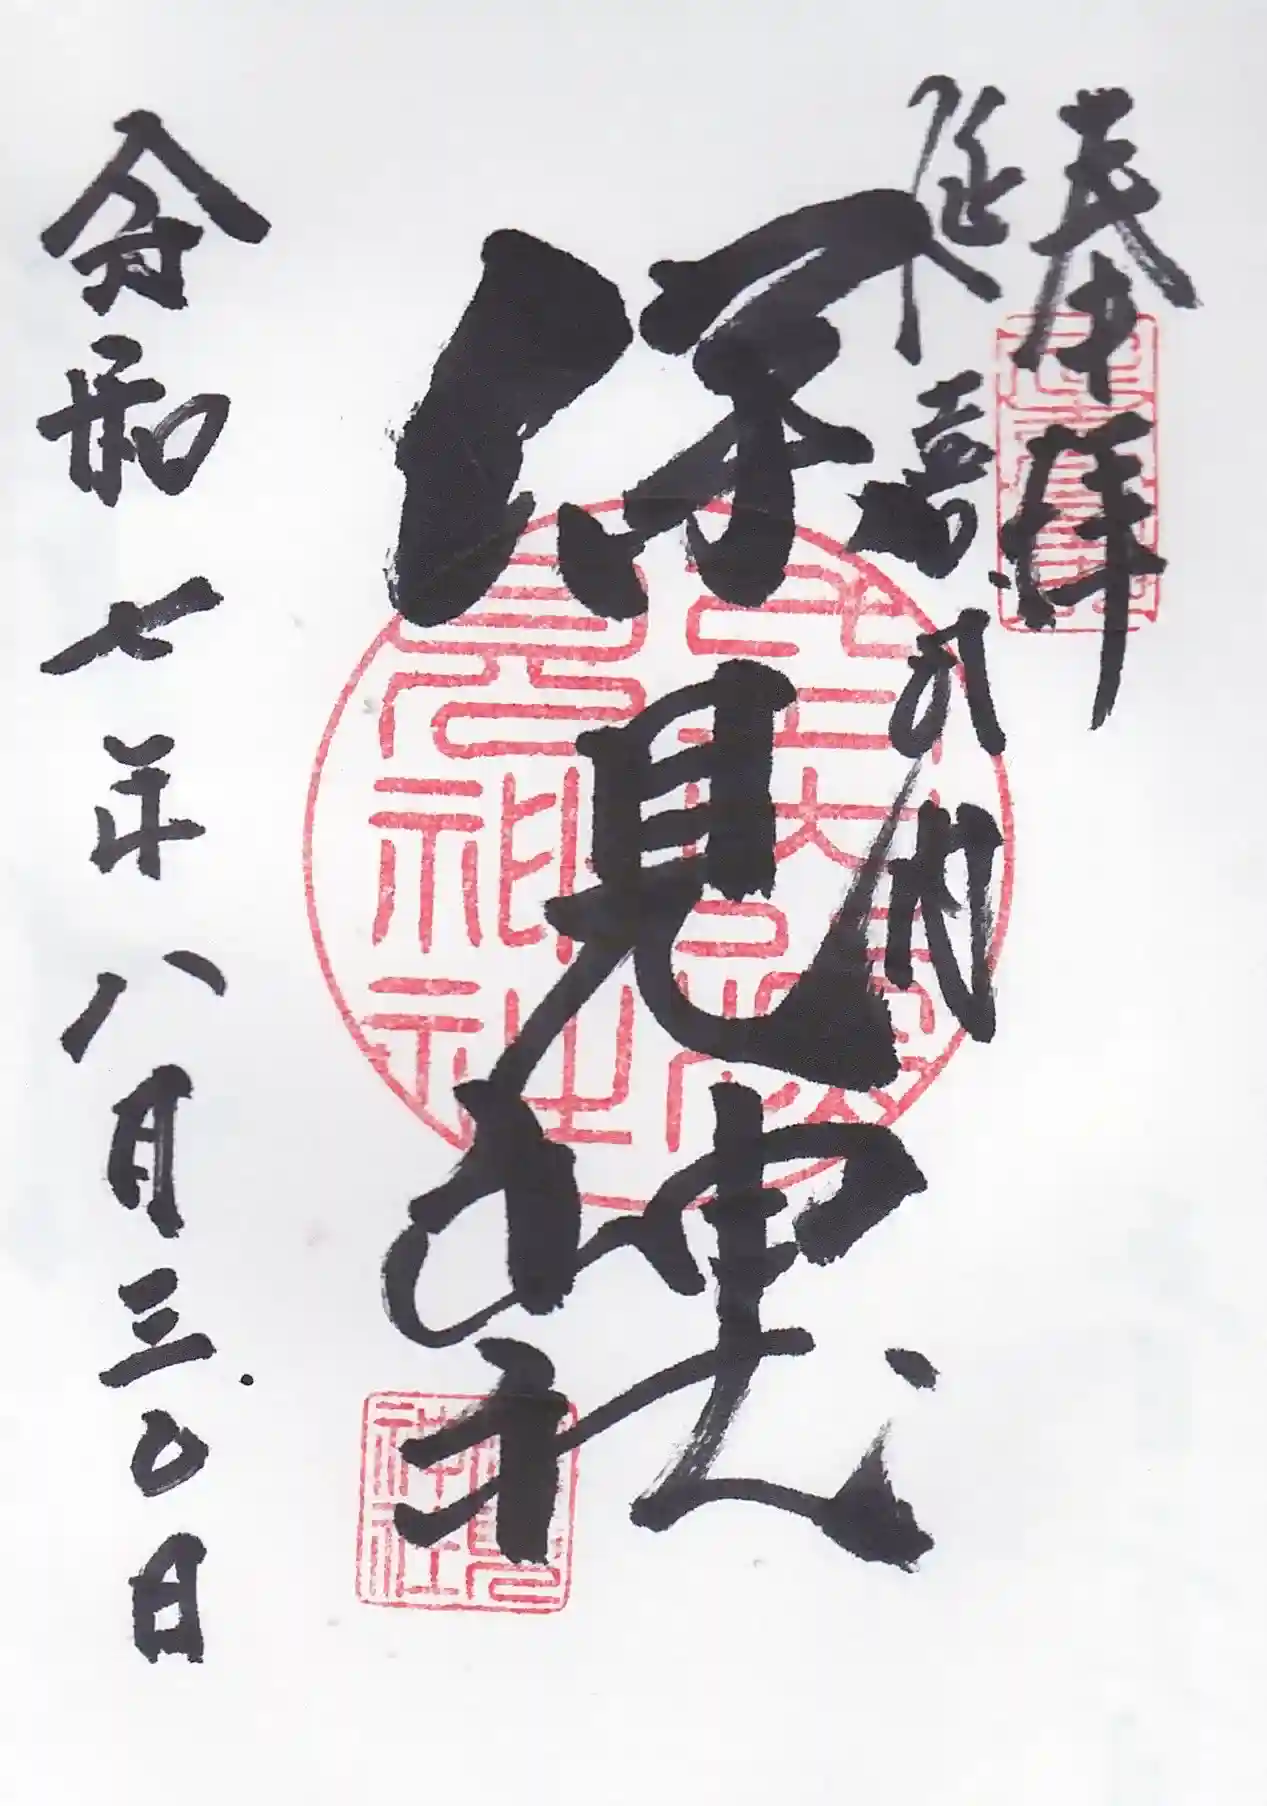 奉拝
延喜式内
深見神社
令和七年八月三〇日